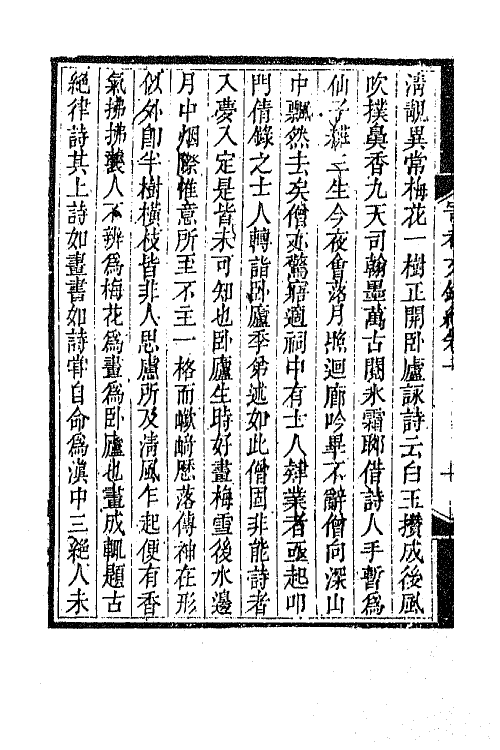 清靚異常梅花一樹正開卧廬詠詩云白玉攢成後風
吹撲鼻香九天司翰墨萬古閱氷霜聊借詩人手暫為
仙子 三生今夜會落月照迴廊吟畢不辭僧向深山
中飄然去矣僧亦驚寤適祠中有士人肄業者亟起叩
門倩錄之士人轉詣卧廬季弟述如此僧固非能詩者
入夢入定是皆未可知也卧廬生時好畫梅雪後水邊
月中烟際惟意所至不主一格而嶔﨑歷落傳神在形
似外卽半樹橫枝皆非人思慮所及清風乍起便有香
氣拂拂襲人不辨為梅花為畫為卧廬也畫成輒題古
絕律詩其上詩如畫書如詩嘗自命為滇中三絕人未